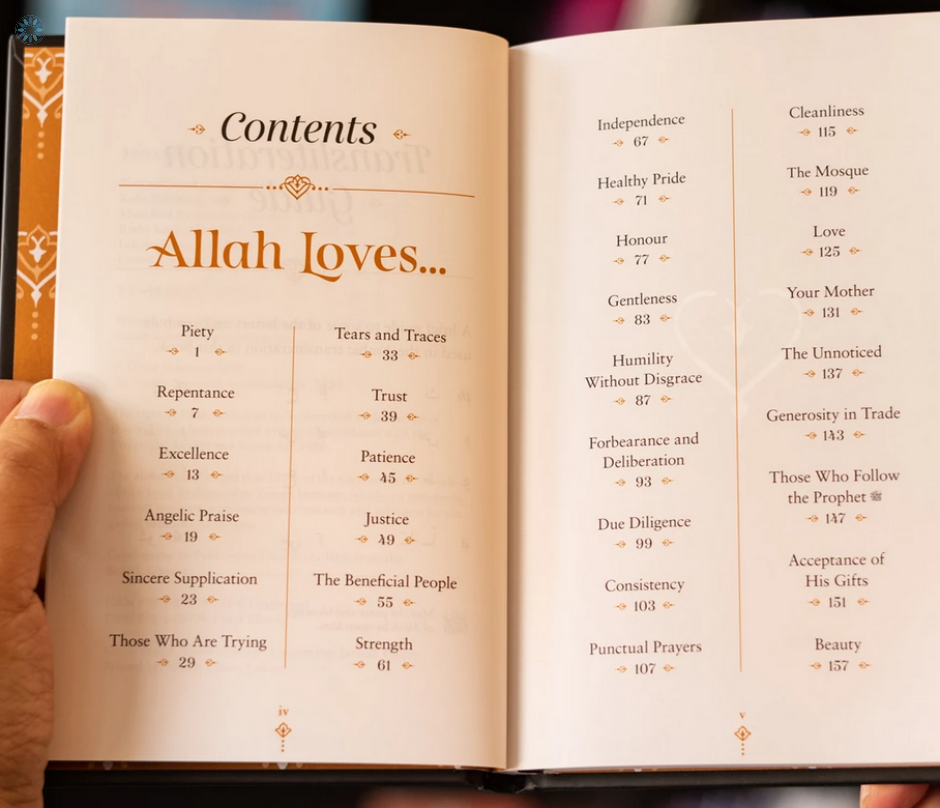 Contents
Allah Loves...
Piety
1
Repentance
7
Excellence
13
Angelic Praise
19
Sincere Supplication
23
Those Who Are Trying
29
Tears and Traces
33
Trust
39
Patience
45
Justice
49
The Beneficial People
55
Strength
61
iv
Independence
67
Healthy Pride
71
Honour
77
Gentleness
83
Humility
Without Disgrace
87
Forbearance and
Deliberation
93
Due Diligence
99
Consistency
103
Punctual Prayers
107
Cleanliness
115
The Mosque
119
Love
125
Your Mother
131
The Unnoticed
137
Generosity in Trade
143
Those Who Follow
the Prophet ﷺ
147
Acceptance of
His Gifts
151
Beauty
157
v